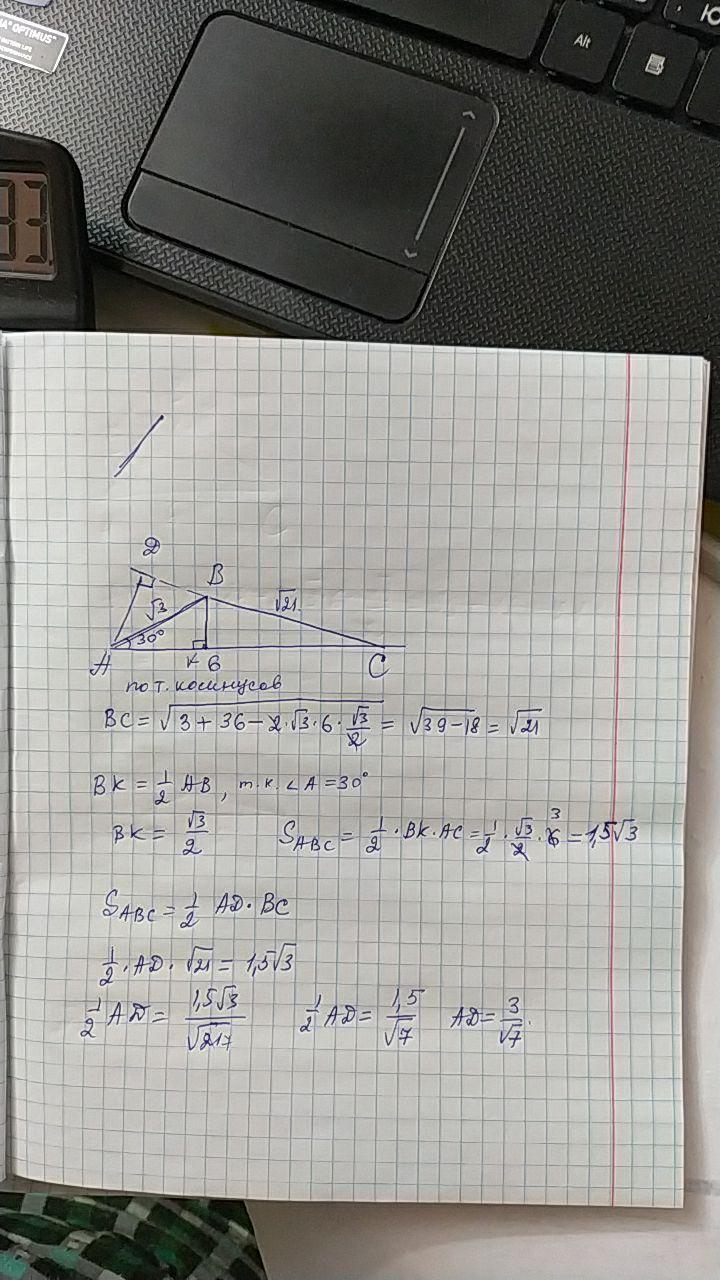 "OPTIMUS"
Alt
D
B
√3
√21
30°
A
K 6
C
по т. косинусов
BC = √(3 + 36 − 2·√3·6·√3/2) = √(39−18) = √21
BK = 1/2 AB, т.к. ∠A = 30°
BK = √3/2 S_ABC = 1/2 · BK · AC = 1/2 · √3/2 · 6 3 = 1,5√3
S_ABC = 1/2 AD · BC
1/2 · AD · √21 = 1,5√3
1/2 AD = 1,5√3/√21 7 1/2 AD = 1,5/√7 AD = 3/√7.